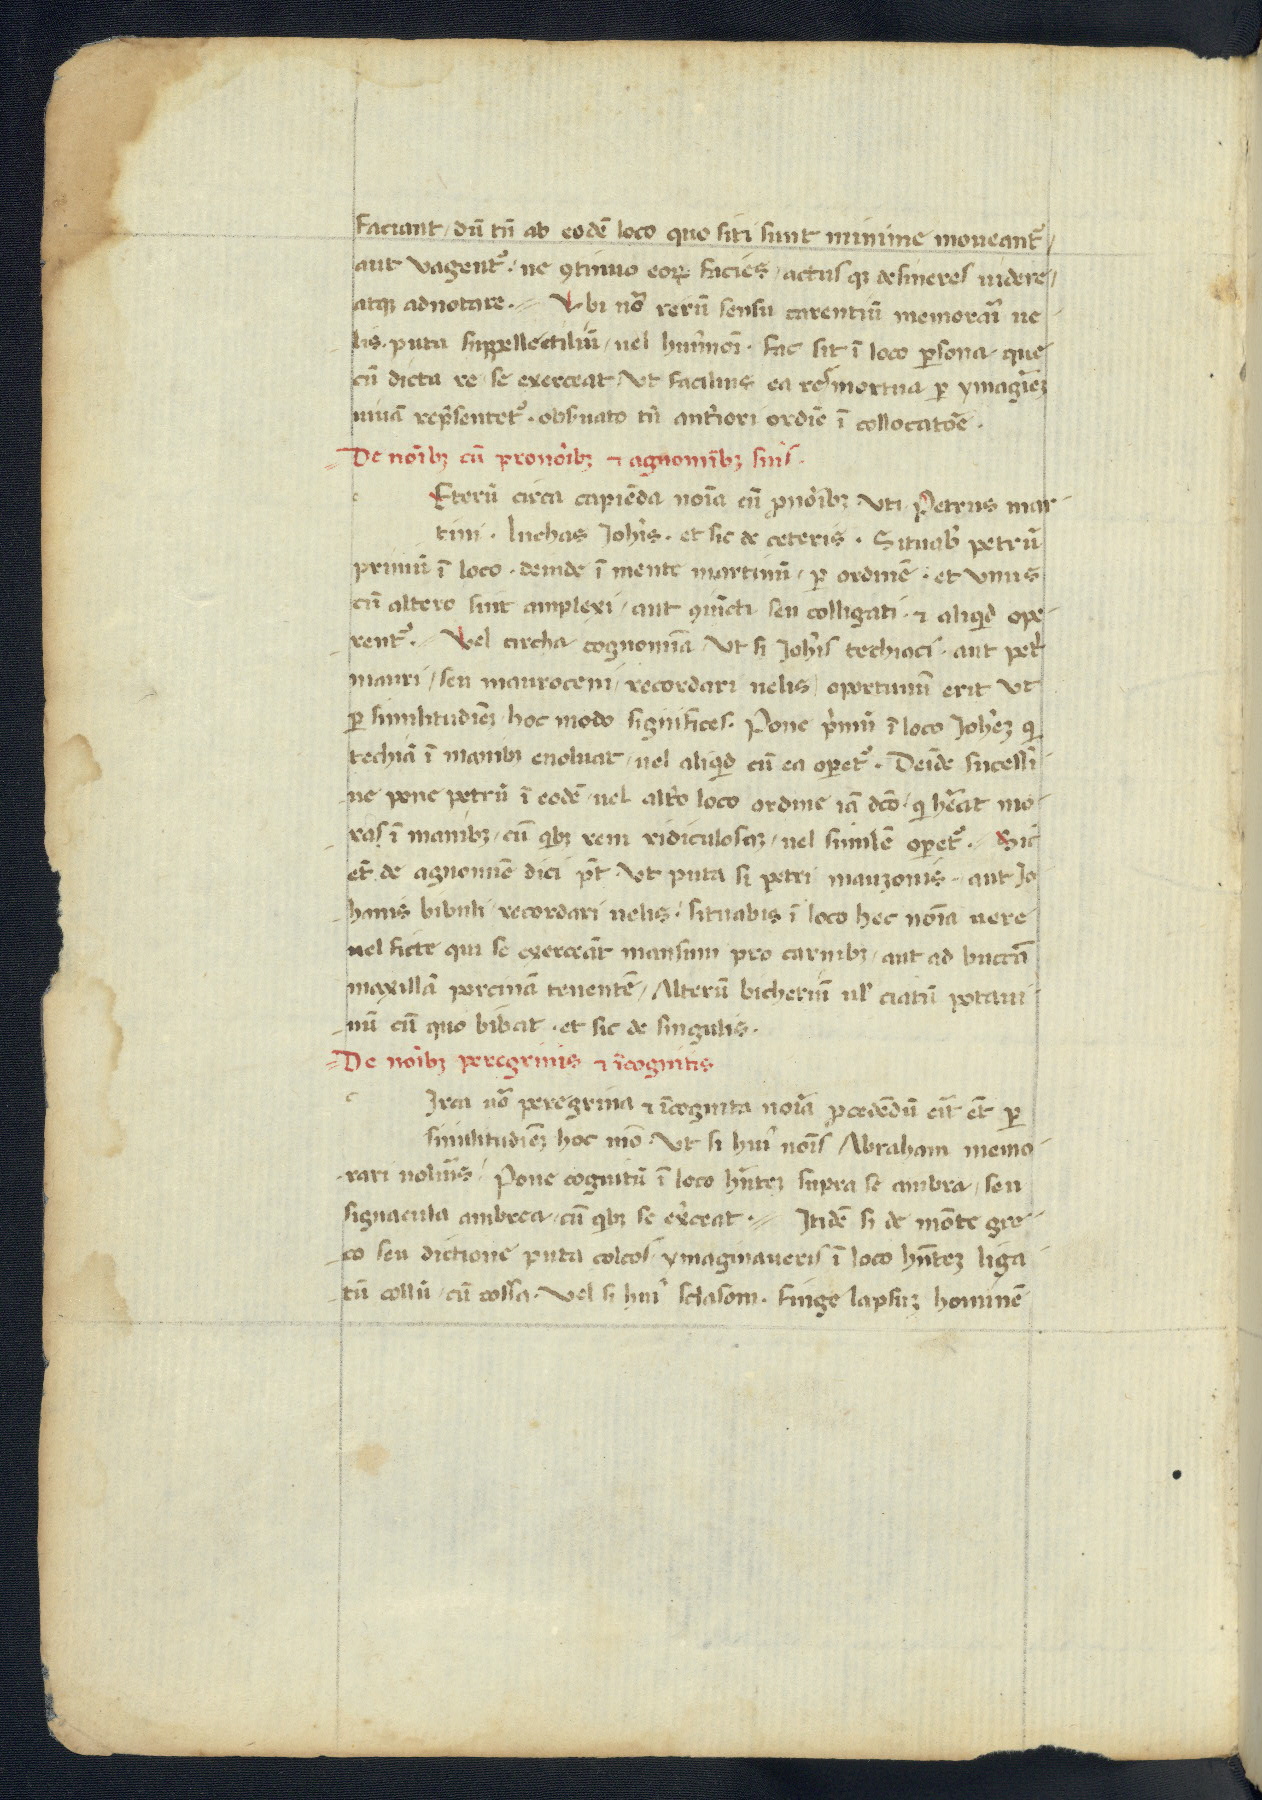 faciant / dū tn̄ ab eodē loco quo siti sunt minime moueant᷑ /
aut vagent᷑ / ne ꝯtinuo eoꝝ facies / actusqꝫ desineres uidere /
atqꝫ adnotare . Vbi uo᷑ rerū sensu carentiū memorari ue
lis . puta suppellectiliū / uel huiꝰmōi . fac sit ī loco ꝑsona que
cū dicta re se exerceat / vt facilius ea res mortua ꝑ ymaginē
uiuā repn̄sentet᷑ . obseruato tn̄ anteriori ordīe ī collocatōe .
De noībꝫ cū pronoībꝫ ⁊ agnomībꝫ suis .
c Eterū circa capiēda noīa cū pnoībꝫ vti Petrus mar
tini . luchas Johīs . et sic de ceteris . Situabis petrū
primū ī loco . deinde ī mente martinū / ꝑ ordinē . et vnus
cū altero sint amplexi / aut ꝯiūcti seu colligati . ⁊ aliqd ope
rent᷑ . Vel circha cognomīa vt si Johīs techiaci . aut petri
mauri / seu mauroceni / recordari uelis / oportunū erit vt
ꝑ similitudinē hoc modo significes . Pone pimū ī loco Johēꝫ qi
techiā ī manibꝫ euoluat / uel aliqd cū ea operet᷑ . Deīde sucessi
ue pone petrū ī eodē / uel altero loco ordine iā dcō . qi hēat mo
ras ī manibꝫ / cū qbꝫ rem ridiculosaꝫ / uel similē operet᷑ . Sic
et de agnomīe dici pt̄ vt puta si petri manzonis . aut Jo
hanis bibuli / recordari uelis . situabis ī loco hec noīa uere
uel ficte qui se exerceāt mansum pro carnibꝫ / aut ad buccā
maxillā porcinā tenentē / Alterū bicheriū ul̄ ciatū potaui
nū cū quo bibat . et sic de singulis .
De noībꝫ peregrinis ⁊ īcognitis
c Jrca uo᷑ peregrina ⁊ īcognita noīa ꝓcedēdū erit et ꝑ
similitudinē hoc mō . vt si huiꝰ noīs / Abraham memo
rari nolueris / Pone cognitū ī loco hn̄teꝫ supra se ambra / seu
signacula ambrea / cū qbꝫ se exerceat . Itidē si de mōte gre
co seu dictione puta colcos ymaginaueris ī loco hn̄teꝫ liga
tū collū / cū cossa . Vel si huiꝰ sclasom . finge lapsuꝫ hominē